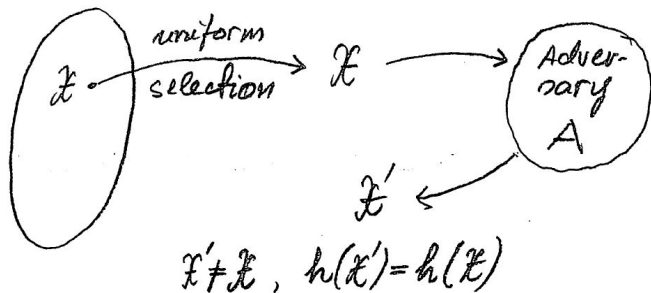 uniform
x
selection
x
Adver-
sary
A
x'
x' ≠ x, h(x') = h(x)